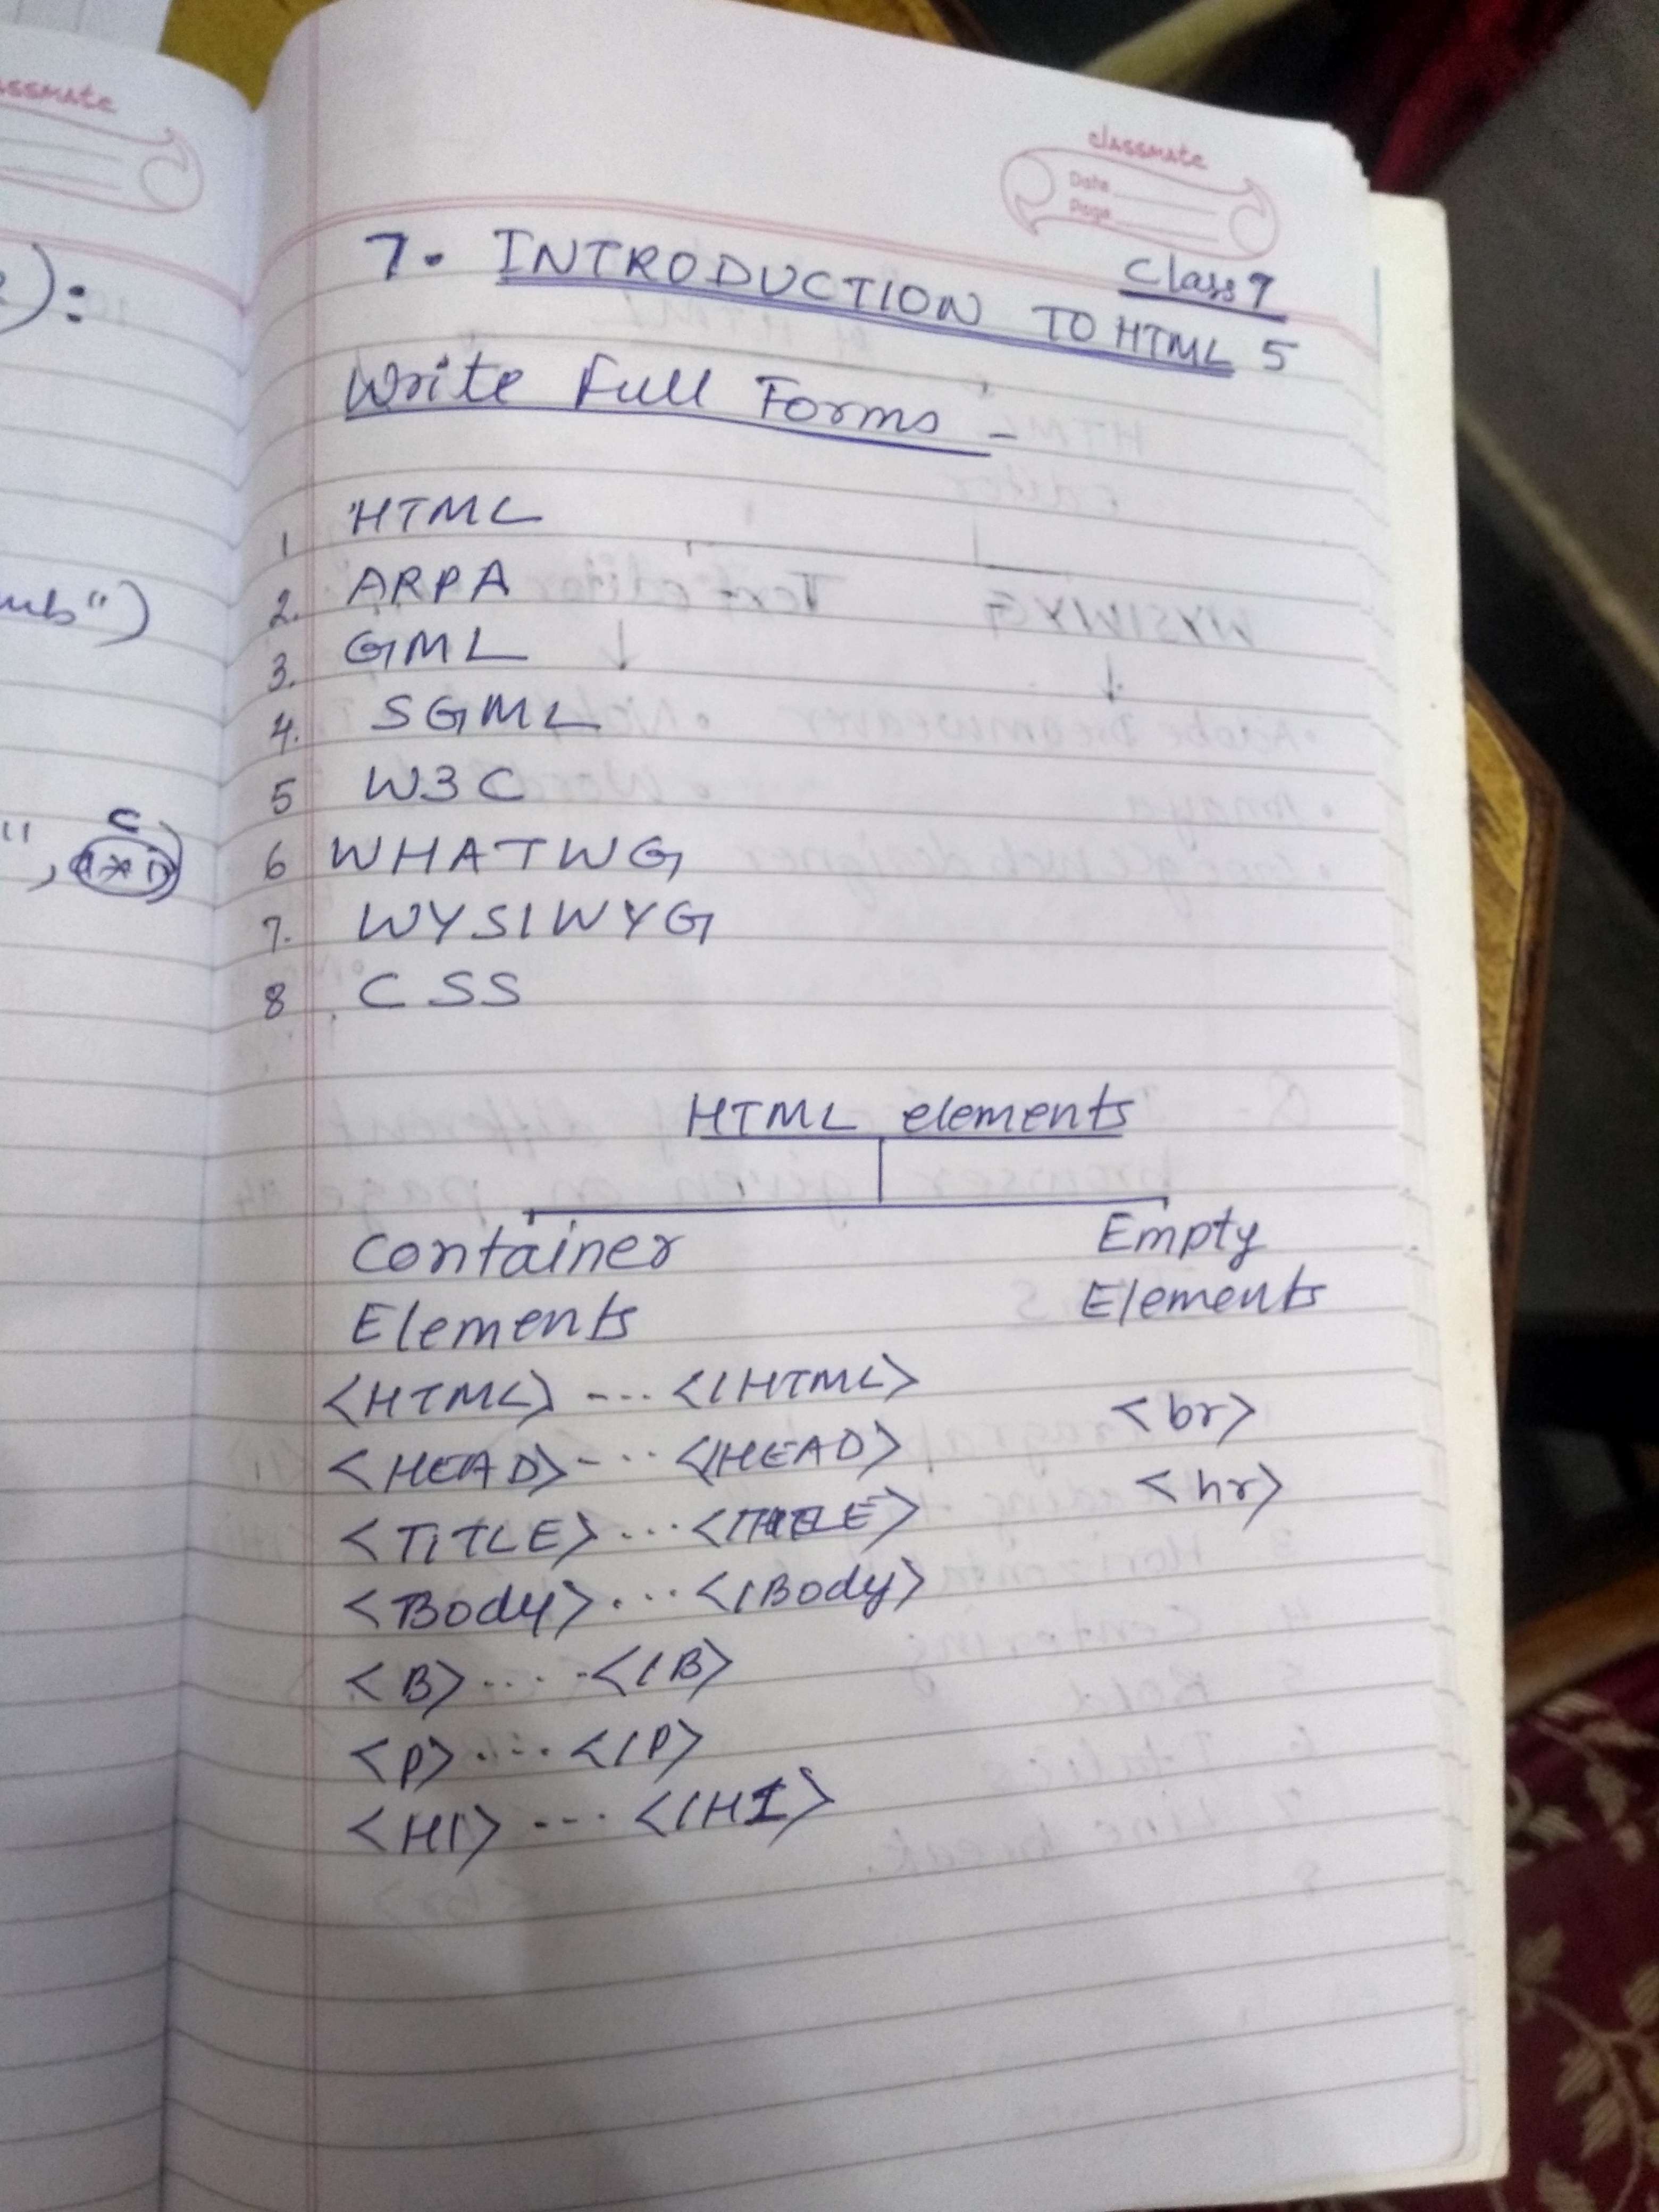 assmate
classmate
Date
Page
7. INTRODUCTION TO HTML 5
Class 7
Write Full Forms -
1 HTML
2. ARPA
3. GML
4. SGML
5 W3C
6 WHATWG
7. WYSIWYG
8 CSS
HTML elements
Container Elements
Empty Elements
<HTML> --- </HTML>
<br>
<HEAD> - ... </HEAD>
<hr>
<TITLE> ... </TITLE>
<Body> ... </Body>
<B> .... </B>
<P> .... </P>
<H1> --- </H1>